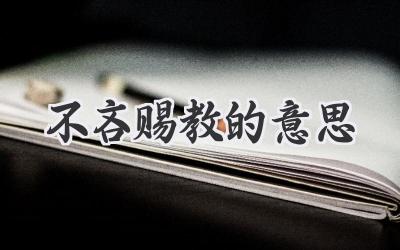 不吝赐教的意思